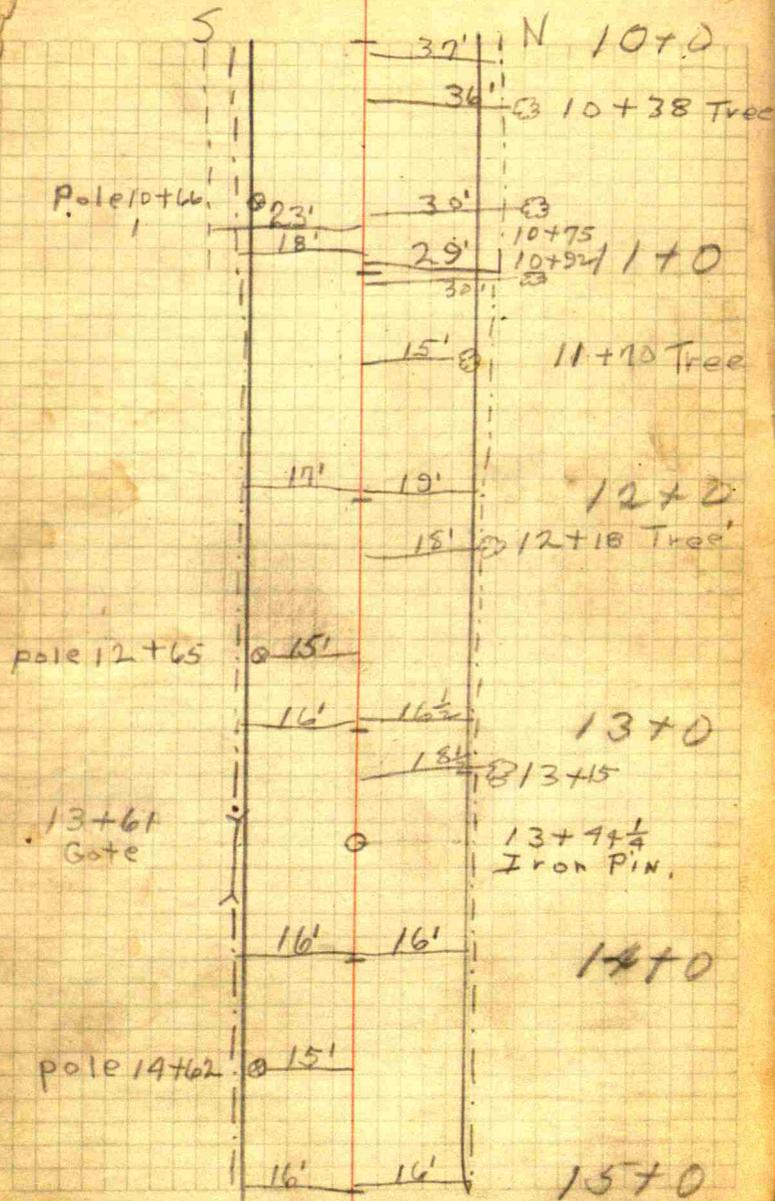 S N 10+0
37'
36' 10+38 Tree
Pole 10+66 30'
23' 10+75
18' 29' 10+92 11+0
30'
15' 11+70 Tree
17' 19' 12+0
18' 12+18 Tree
pole 12+65 15'
16' 16½ 13+0
18½ 13+15
13+61
Gate
13+44¼
Iron PIN.
16' 16' 14+0
pole 14+62 15'
16' 16' 15+0